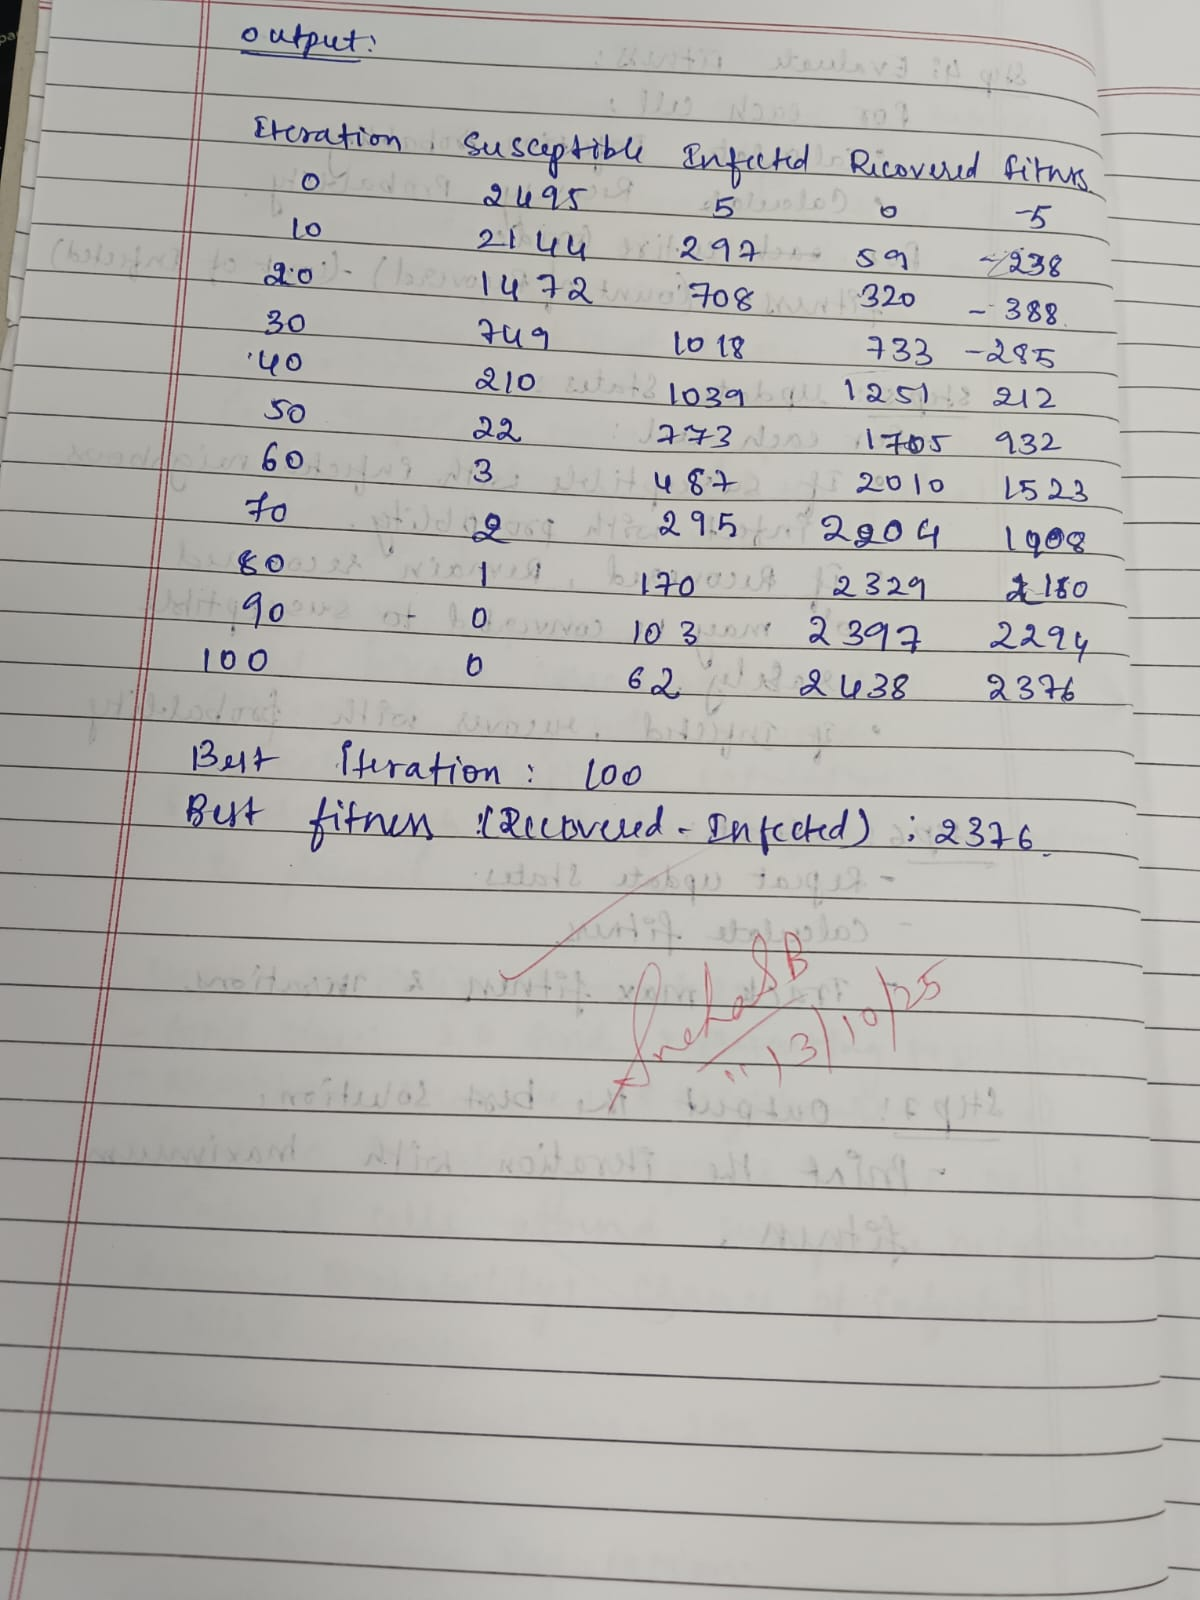 output:
Iteration Susceptible Infected Recovered fitnes
0 2495 5 0 -5
10 2144 297 59 -238
20 1472 708 320 -388
30 749 1018 733 -285
40 210 1039 1251 212
50 22 773 1705 932
60 3 487 2010 1523
70 2 295 2204 1908
80 1 170 2329 2160
90 0 103 2397 2294
100 0 62 2438 2376
Best Iteration: 100
Best fitness :(Recovered - Infected) : 2376.
Sneha S B
13/10/25